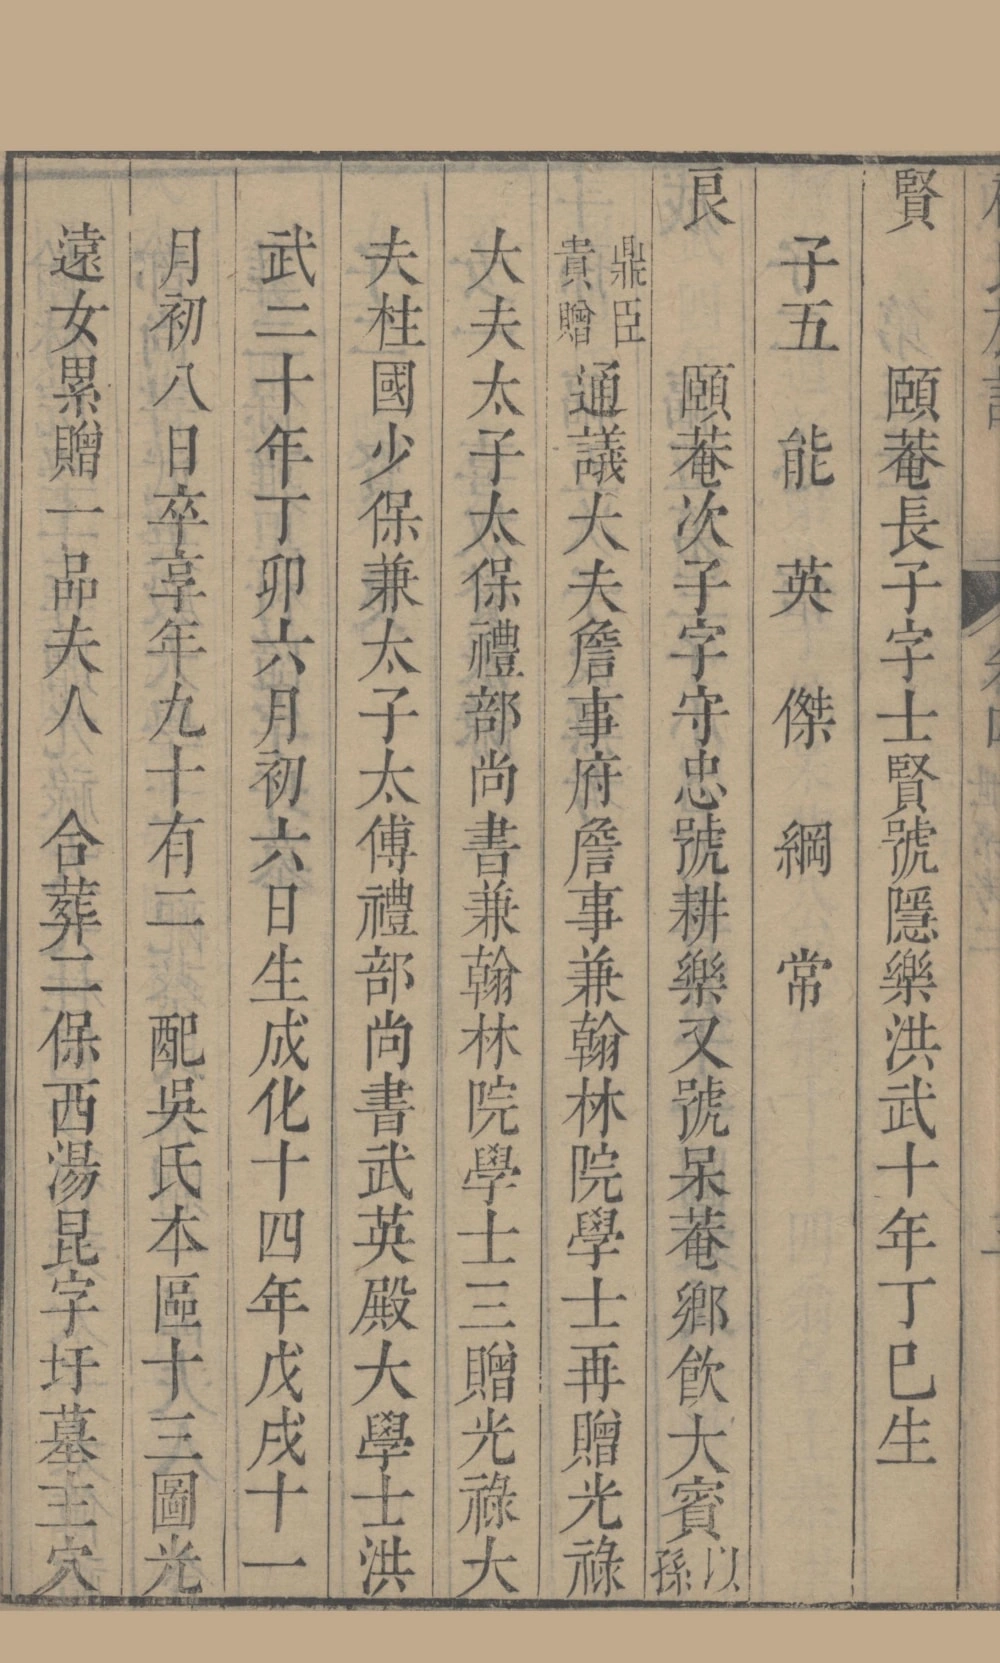 賢　頤菴長子字士賢號隱樂洪武十年丁巳生
子五　能　英　傑　綱　常
良　頤菴次子字守忠號耕樂又號呆菴鄉飲大賓以孫
鼎臣貴贈通議大夫詹事府詹事兼翰林院學士再贈光祿
大夫太子太保禮部尚書兼翰林院學士三贈光祿大
夫柱國少保兼太子太傅禮部尚書武英殿大學士洪
武二十年丁卯六月初六日生成化十四年戊戌十一
月初八日卒享年九十有二　配吳氏本區十三圖光
遠女累贈一品夫人　合葬二保西湯昆字圩墓主穴